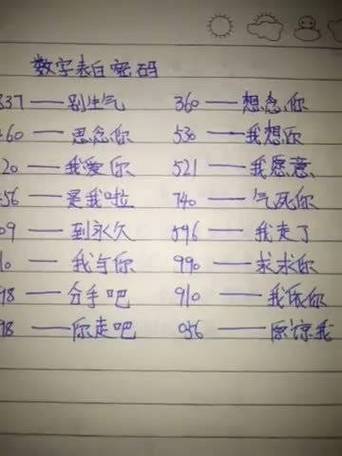 数字表白密码
837——别生气 360——想念你
460——思念你 530——我想你
20——我爱你 521——我愿意
56——是我啦 740——气死你
09——到永久 596——我走了
10——我与你 990——求求你
98——分手吧 910——我依你
98——你走吧 056——原谅我